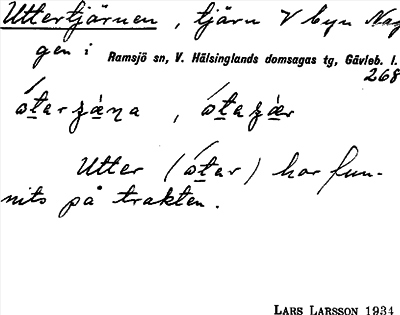 Uttertjärnen, tjärn V byn Nag
gen i Ramsjö sn, V. Hälsinglands domsagas tg, Gävleb. l.
268
Utter (ótar) har fun-
nits på trakten.
LARS LARSSON 1934